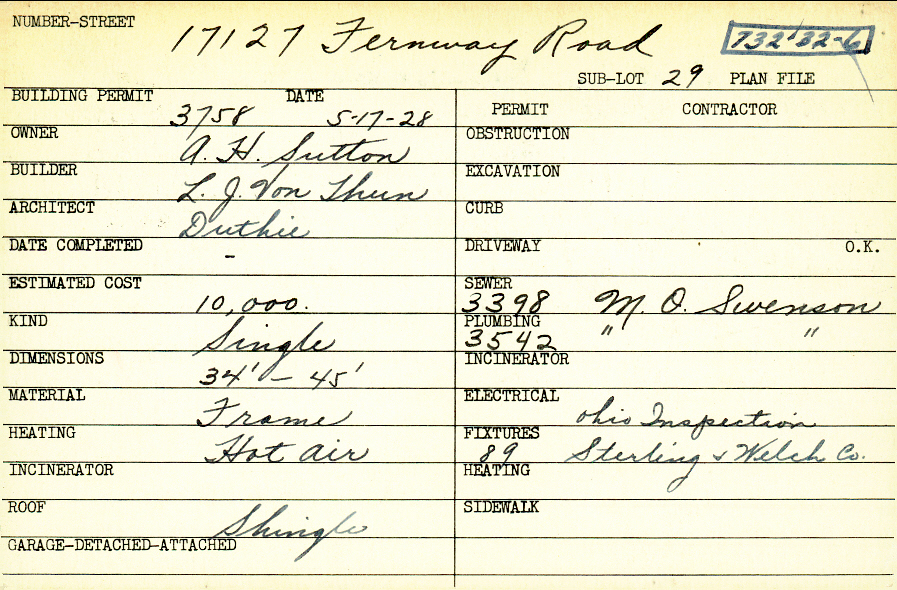 NUMBER-STREET 17127 Fernway Road 732'32-6
SUB-LOT 29 PLAN FILE
BUILDING PERMIT 3758 DATE 5-17-28
PERMIT CONTRACTOR
OWNER A. H. Sutton
OBSTRUCTION
BUILDER L. J. Von Thun
EXCAVATION
ARCHITECT Duthie
CURB
DATE COMPLETED -
DRIVEWAY O.K.
ESTIMATED COST 10,000.
SEWER 3398 M. O. Swenson
KIND Single
PLUMBING 3542 " "
DIMENSIONS 34' - 45'
INCINERATOR
MATERIAL Frame
ELECTRICAL Ohio Inspection
HEATING Hot Air
FIXTURES 89 Sterling & Welch Co.
INCINERATOR
HEATING
ROOF Shingle
SIDEWALK
GARAGE-DETACHED-ATTACHED